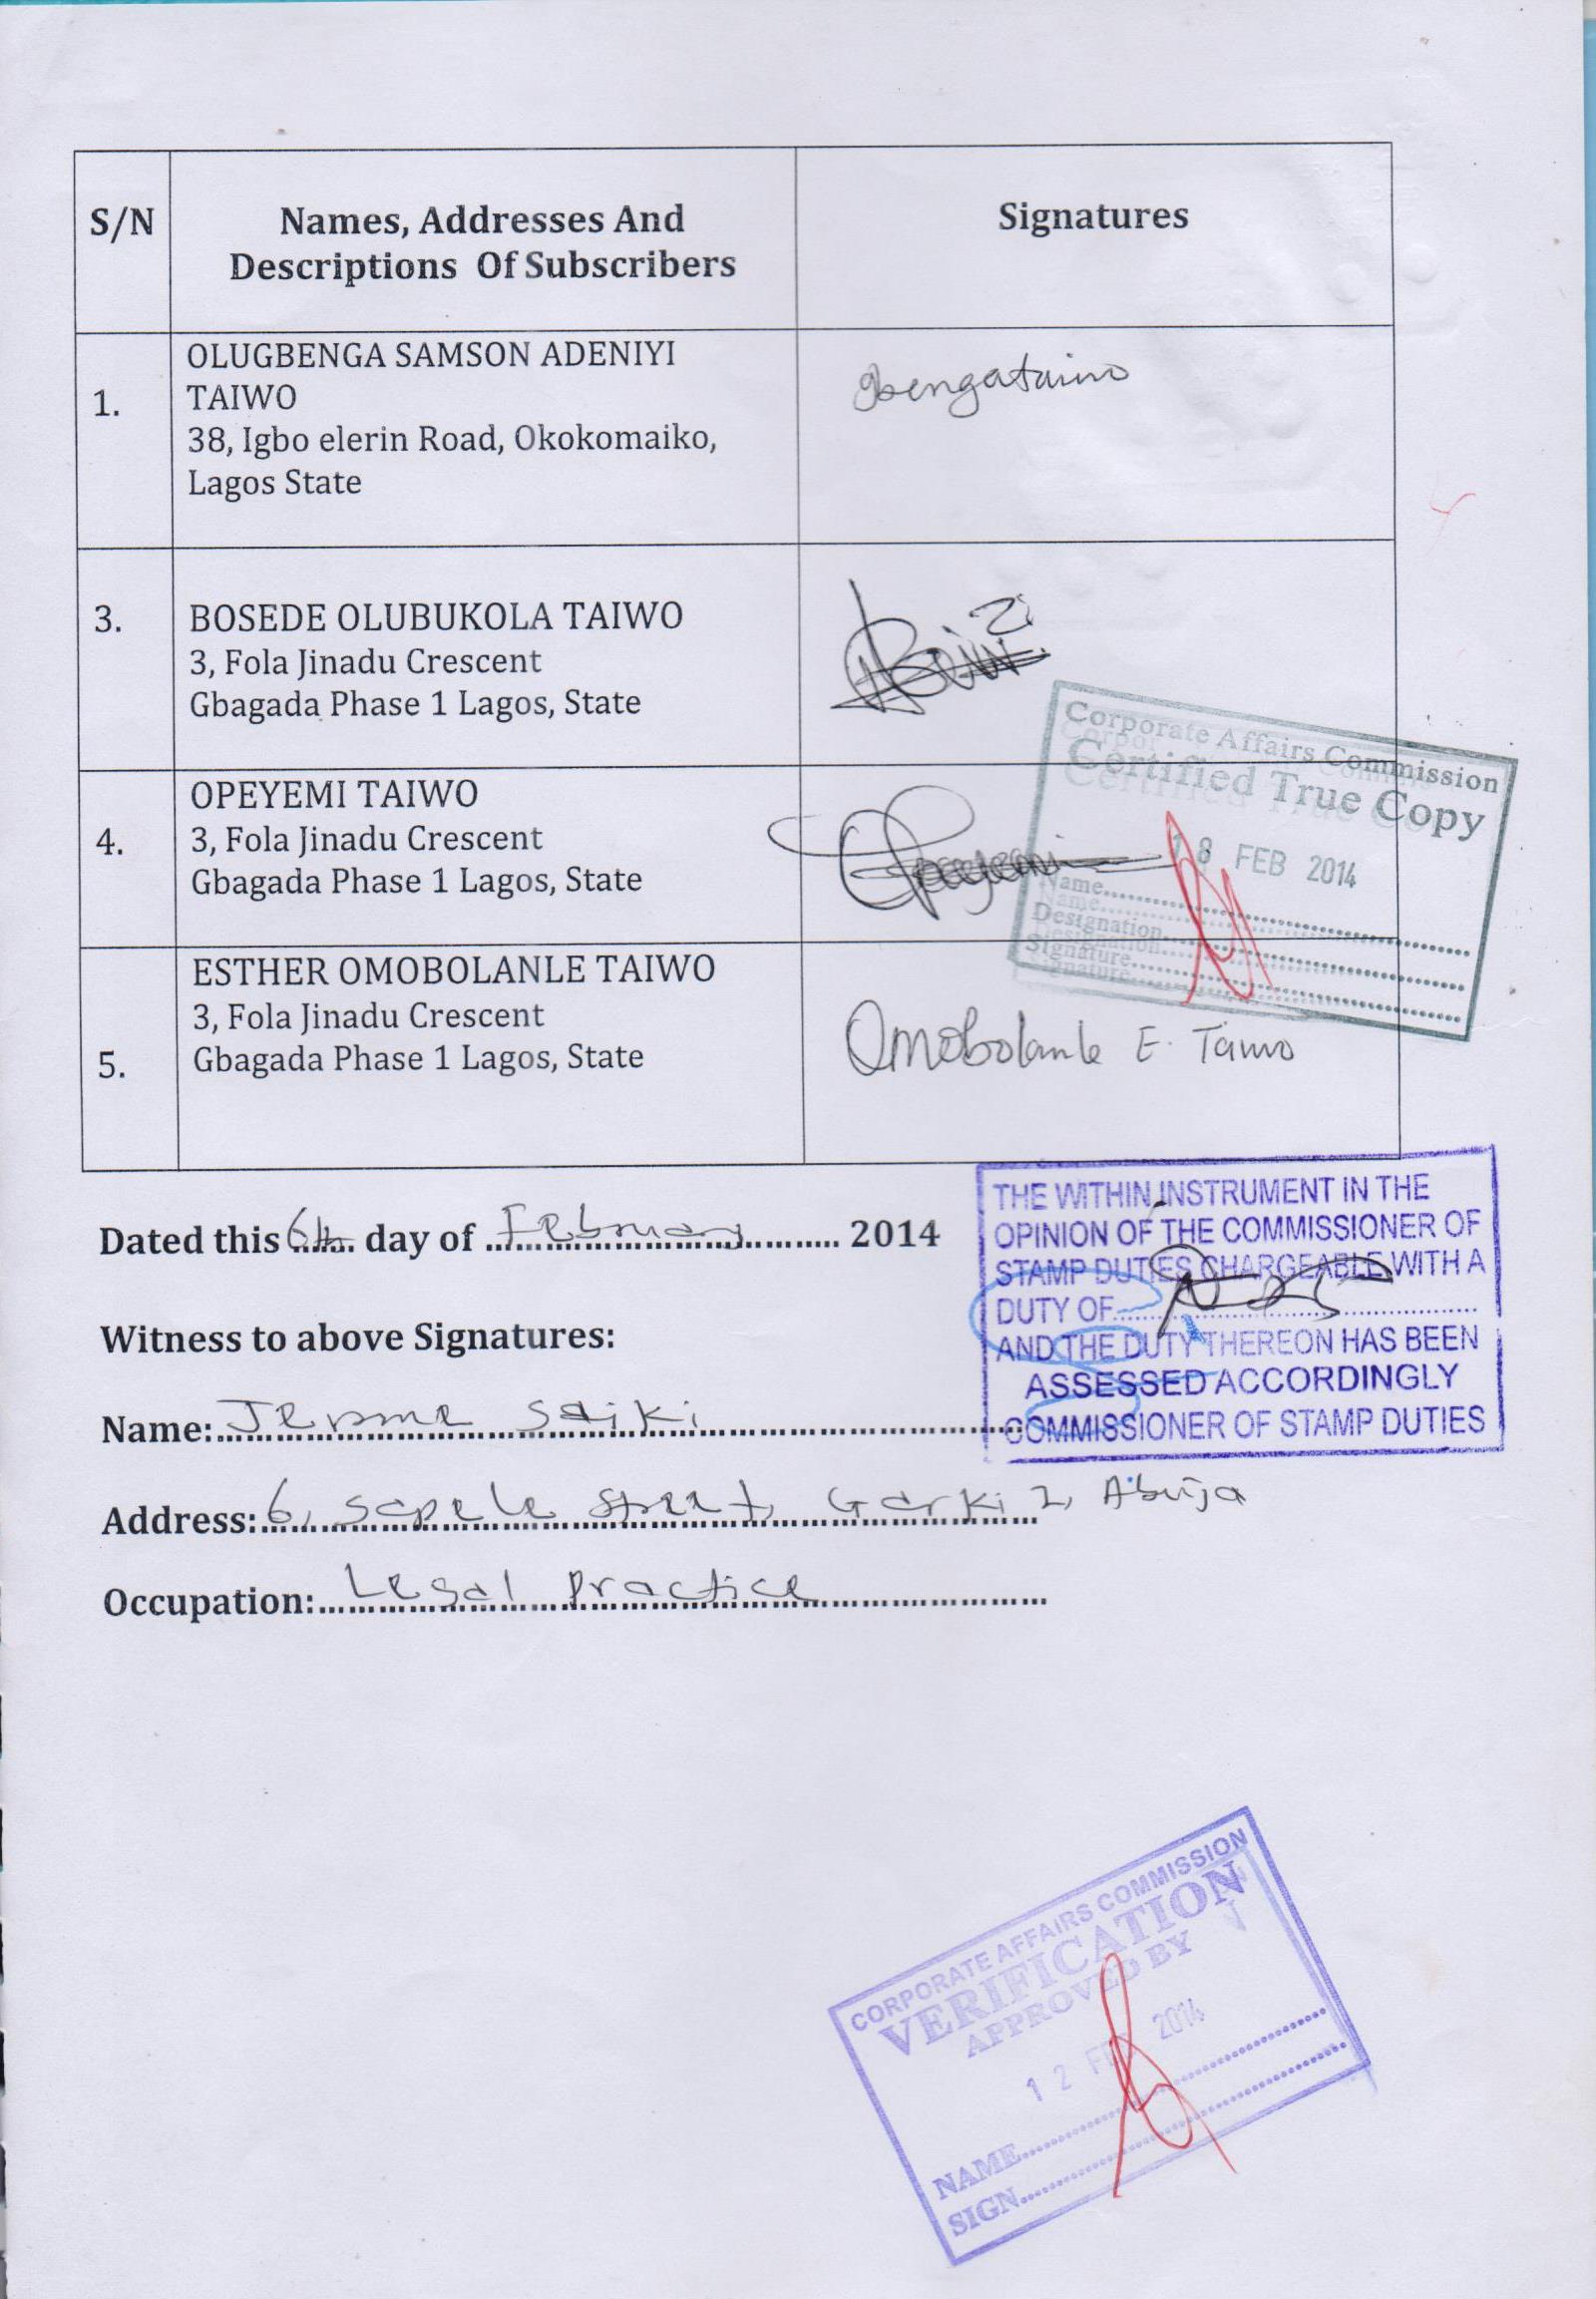 S/N
Names, Addresses And
Descriptions Of Subscribers
Signatures
1.
OLUGBENGA SAMSON ADENIYI
TAIWO
38, Igbo elerin Road, Okokomaiko,
Lagos State
gbengataiwo
3.
BOSEDE OLUBUKOLA TAIWO
3, Fola Jinadu Crescent
Gbagada Phase 1 Lagos, State
4.
OPEYEMI TAIWO
3, Fola Jinadu Crescent
Gbagada Phase 1 Lagos, State
Opeyemi
Corporate Affairs Commission
Certified True Copy
18 FEB 2014
Name
Designation
Signature
5.
ESTHER OMOBOLANLE TAIWO
3, Fola Jinadu Crescent
Gbagada Phase 1 Lagos, State
Omobolanle E. Taiwo
Dated this 6th day of February 2014
THE WITHIN INSTRUMENT IN THE
OPINION OF THE COMMISSIONER OF
STAMP DUTIES CHARGEABLE WITH A
DUTY OF
AND THE DUTY THEREON HAS BEEN
ASSESSED ACCORDINGLY
COMMISSIONER OF STAMP DUTIES
Witness to above Signatures:
Name: Jerome Saiki
Address: 6, Sapele Street, Garki 2, Abuja
Occupation: Legal Practice
CORPORATE AFFAIRS COMMISSION
VERIFICATION
APPROVED BY
12 FEB 2014
NAME
SIGN